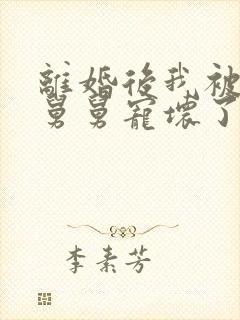 離婚後我被
舅舅寵壞了
李素芳